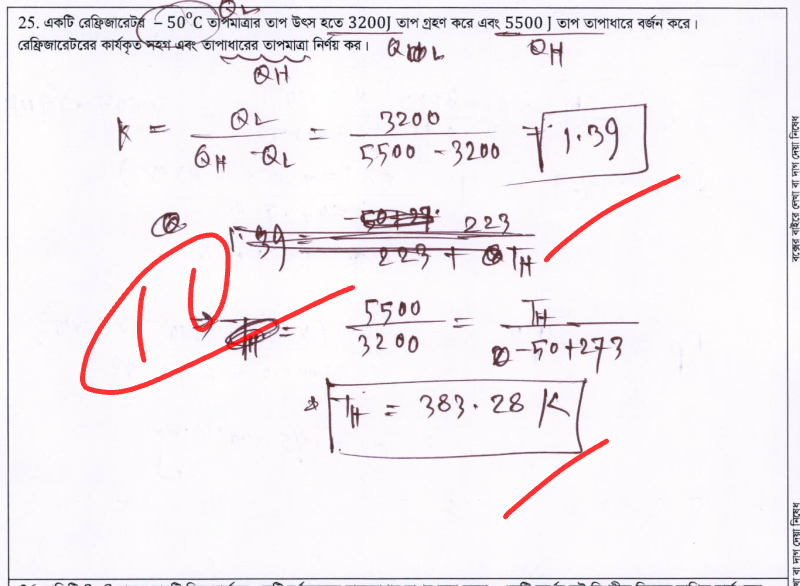 25. একটি রেফ্রিজারেটর −50°C তাপমাত্রার তাপ উৎস হতে 3200J তাপ গ্রহণ করে এবং 5500 J তাপ তাপাধারে বর্জন করে।
রেফ্রিজারেটরের কার্যকৃত সহগ এবং তাপাধারের তাপমাত্রা নির্ণয় কর।
QL
QH
QL
QH
K = QL / (QH - QL) = 3200 / (5500 - 3200) = 1.39
223
1.39 =
223 + TH
→ 5500 / 3200 = TH / (-50+273)
TH = 383.28 K
বক্সের বাইরে লেখা বা দাগ দেয়া নিষেধ